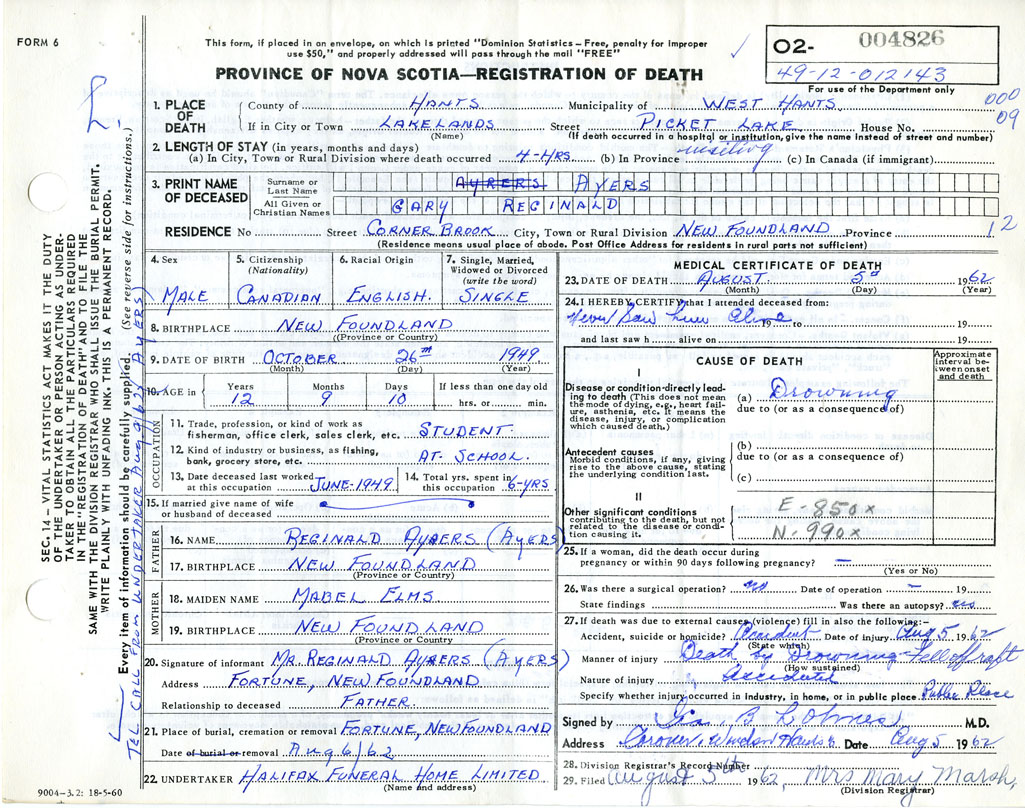 FORM 6
This form, if placed in an envelope, on which is printed "Dominion Statistics – Free, penalty for improper
use $50," and properly addressed will pass through the mail "FREE"
PROVINCE OF NOVA SCOTIA—REGISTRATION OF DEATH
02- 004826
49-12-012143
For use of the Department only
000
09
1. PLACE OF DEATH
County of HANTS Municipality of WEST HANTS
If in City or Town LAKELANDS Street PICKET LAKE House No.
(Name) (If death occurred in a hospital or institution, give the name instead of street and number)
2. LENGTH OF STAY (in years, months and days)
(a) In City, Town or Rural Division where death occurred 4-HRS. (b) In Province visiting (c) In Canada (if immigrant)
3. PRINT NAME OF DECEASED
Surname or Last Name AYRERS AYERS
All Given or Christian Names GARY REGINALD
RESIDENCE No Street CORNER BROOK City, Town or Rural Division NEW FOUNDLAND Province 12
(Residence means usual place of abode. Post Office Address for residents in rural parts not sufficient)
4. Sex
MALE
5. Citizenship
(Nationality)
CANADIAN
6. Racial Origin
ENGLISH.
7. Single, Married,
Widowed or Divorced
(write the word)
SINGLE
8. BIRTHPLACE NEW FOUNDLAND
(Province or Country)
9. DATE OF BIRTH OCTOBER 26TH 1949
(Month) (Day) (Year)
10. AGE in
Years Months Days If less than one day old
12 9 10 hrs. or min.
OCCUPATION
11. Trade, profession, or kind of work as
fisherman, office clerk, sales clerk, etc. STUDENT
12. Kind of industry or business, as fishing,
bank, grocery store, etc. AT- SCHOOL.
13. Date deceased last worked
at this occupation JUNE-1949
14. Total yrs. spent in
this occupation 6-YRS
15. If married give name of wife
or husband of deceased
FATHER
16. NAME REGINALD AYRERS (AYERS
17. BIRTHPLACE NEW FOUNDLAND
(Province or Country)
MOTHER
18. MAIDEN NAME MABEL ELMS
19. BIRTHPLACE NEW FOUNDLAND
(Province or Country)
20. Signature of informant MR. REGINALD AYRERS (AYERS)
Address FORTUNE, NEW FOUNDLAND
Relationship to deceased FATHER
21. Place of burial, cremation or removal FORTUNE, NEWFOUNDLAND
Date of burial or removal Aug 6/62
22. UNDERTAKER HALIFAX FUNERAL HOME LIMITED
(Name and address)
9004–3.2: 18-5-60
MEDICAL CERTIFICATE OF DEATH
23. DATE OF DEATH AUGUST 5th 1962
(Month) (Day) (Year)
24. I HEREBY CERTIFY that I attended deceased from:
Never Saw him Alive 19 to 19
and last saw h alive on 19
CAUSE OF DEATH
Approximate
interval between
onset
and death
I
Disease or condition directly leading
to death (This does not mean
the mode of dying, e.g., heart failure,
asthenia, etc. It means the
disease, injury, or complication
which caused death.)
(a) Drowning
due to (or as a consequence of)
Antecedent causes
Morbid conditions, if any, giving
rise to the above cause, stating
the underlying condition last.
(b)
due to (or as a consequence of)
(c)
II
Other significant conditions
contributing to the death, but not
related to the disease or condition
causing it.
E-850x
N-990x
25. If a woman, did the death occur during
pregnancy or within 90 days following pregnancy? —
(Yes or No)
26. Was there a surgical operation? no Date of operation — 19
State findings Was there an autopsy? no
27. If death was due to external causes (violence) fill in also the following:-
Accident, suicide or homicide? Accident Date of injury Aug 5 1962
(State which)
Manner of injury Death by Drowning - Fell off raft
(How sustained)
Nature of injury Accidental
Specify whether injury occurred in industry, in home, or in public place Public Place
Signed by Geo. B Lohnes M.D.
Address Coroner, Windsor Hants Date Aug 5 1962
28. Division Registrar's Record Number
29. Filed August 5th 1962 Mrs Mary Marsh,
(Division Registrar)
SEC. 14 – VITAL STATISTICS ACT MAKES IT THE DUTY
OF THE UNDERTAKER OR PERSON ACTING AS UNDERTAKER
TO OBTAIN ALL THE PARTICULARS REQUIRED
IN THE "REGISTRATION OF DEATH" AND TO FILE THE
SAME WITH THE DIVISION REGISTRAR WHO SHALL ISSUE THE BURIAL PERMIT.
WRITE PLAINLY WITH UNFADING INK. THIS IS A PERMANENT RECORD.
Every item of information should be carefully supplied. (See reverse side for instructions.)
TEL CALL FROM UNDERTAKER Aug 9/62 AYERS)